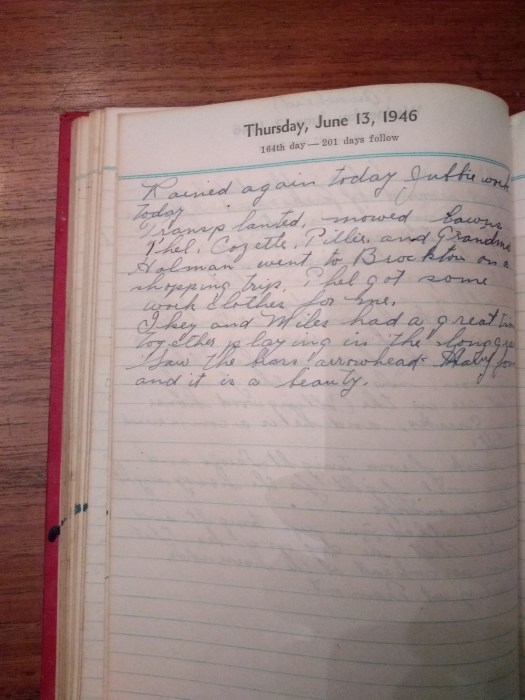 Thursday, June 13, 1946
164th day — 201 days follow
Rained again today Jubbie work
today
Transplanted, mowed Lawns
Phel, Cozette, Piller, and Grandma
Holman went to Brockton on a
shopping trip. Phel got some
work clothes for me.
Ikey and Miles had a great time
together playing in the long grass
Saw the arrowhead that
and it is a beauty.